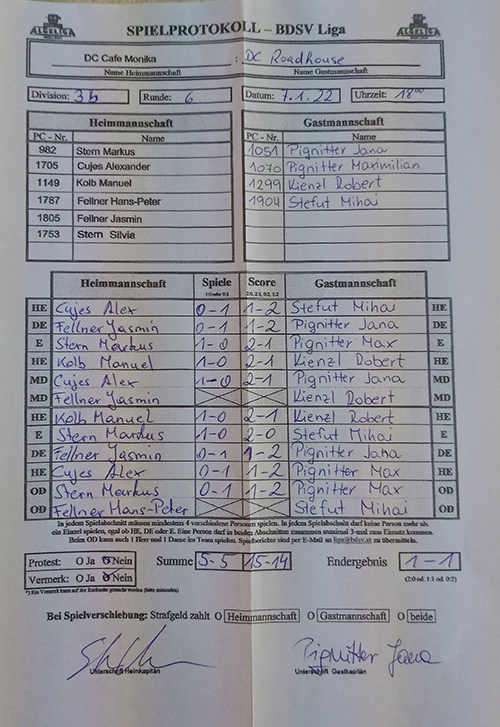 ALGELIGA SPIELPROTOKOLL – BDSV Liga ALGELIGA
DC Cafe Monika : DC Roadhouse
Name Heimmannschaft Name Gastmannschaft
Division: 3b Runde: 6 Datum: 7.1.22 Uhrzeit: 18⁰⁰
Heimmannschaft Gastmannschaft
PC - Nr. Name PC - Nr. Name
982 Stern Markus 1051 Pignitter Jana
1705 Cujes Alexander 1070 Pignitter Maximilian
1149 Kolb Manuel 1299 Kienzl Robert
1787 Fellner Hans-Peter 1904 Stefut Mihai
1805 Fellner Jasmin
1753 Stern Silvia
Heimmannschaft Spiele Score Gastmannschaft
1:0 oder 0:1 2:0, 2:1, 0:2, 1:2
HE Cujes Alex 0-1 1-2 Stefut Mihai HE
DE Fellner Jasmin 0-1 1-2 Pignitter Jana DE
E Stern Markus 1-0 2-1 Pignitter Max E
HE Kolb Manuel 1-0 2-1 Kienzl Robert HE
MD Cujes Alex 1-0 2-1 Pignitter Jana MD
MD Fellner Jasmin Kienzl Robert MD
HE Kolb Manuel 1-0 2-1 Kienzl Robert HE
E Stern Markus 1-0 2-0 Stefut Mihai E
DE Fellner Jasmin 0-1 1-2 Pignitter Jana DE
HE Cujes Alex 0-1 1-2 Pignitter Max HE
OD Stern Markus 0-1 1-2 Pignitter Max OD
OD Fellner Hans-Peter Stefut Mihai OD
In jedem Spielabschnitt müssen mindestens 4 verschiedene Personen spielen. In jedem Spielabschnitt darf keine Person mehr als
ein Einzel spielen, egal ob HE, DE oder E. Eine Person darf in beiden Abschnitten zusammen maximal 3-mal zum Einsatz kommen.
Beim OD kann auch 1 Herr und 1 Dame im Team spielen. Spielberichte sind per E-Mail an liga@bdsv.at zu übermitteln.
Protest: O Ja O Nein Summe 5-5 15-14 Endergebnis 1-1
Vermerk: O Ja O Nein (2:0 od. 1:1 od. 0:2)
*) Ein Vermerk kann auf der Rückseite gemacht werden (bitte ankreuzen)
Bei Spielverschiebung: Strafgeld zahlt O Heimmannschaft O Gastmannschaft O beide
Pignitter Jana
Unterschrift Heimkapitän Unterschrift Gastkapitän